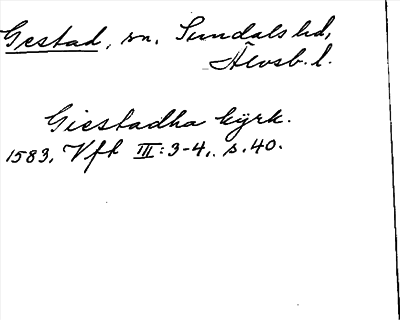 Gestad, sn. Sundals hd,
Älvsb. l.
Giestadha kyrk.
1583, Vft III: 3-4, s. 40.